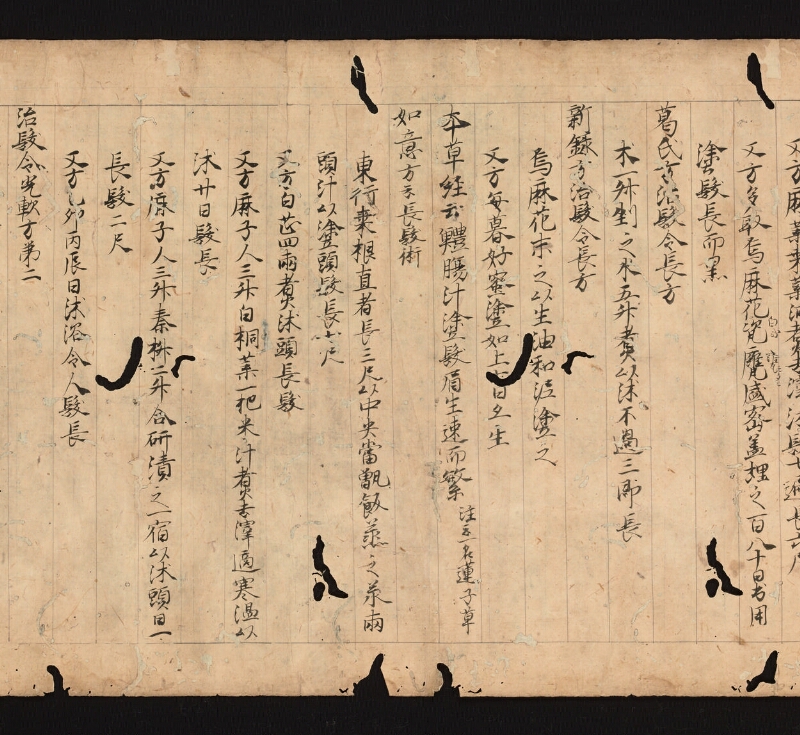 又方麻葉桑葉泔煮去滓沐髮七過長六尺
又方多取烏麻花瓷甖盛密蓋埋之百八十日出用
塗髮長而黑
葛氏方治髮令長方
术一升剉之水五升煮以沐不過三即長
新錄方治髮令長方
烏麻花末之以生油和泥塗之
又方每暮好蜜塗如上七日夕生
本草經云鱧腸汁塗髮眉生速而繁 注云一名蓮子草
如意方云長髮術
東行棗根直者長三尺以中央當甑飯蒸之承兩
頭汁以塗頭髮長七尺
又方白芷四兩煮沐頭長髮
又方麻子人三升白桐葉一把米汁煮去滓適寒溫以
沐廿日髮長
又方麻子人三升秦椒二升合研漬之一宿以沐頭日一
長髮二尺
又方乙卯丙辰日沐浴令人髮長
治髮令光軟方第二